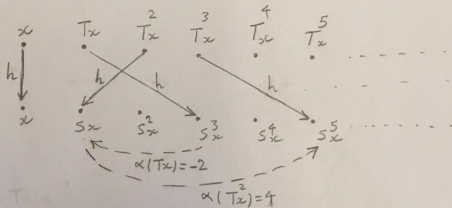 x Tx T²x T³x T⁴x T⁵x
h h h h
x Sx S²x S³x S⁴x S⁵x
α(Tx)=-2
α(T²x)=4